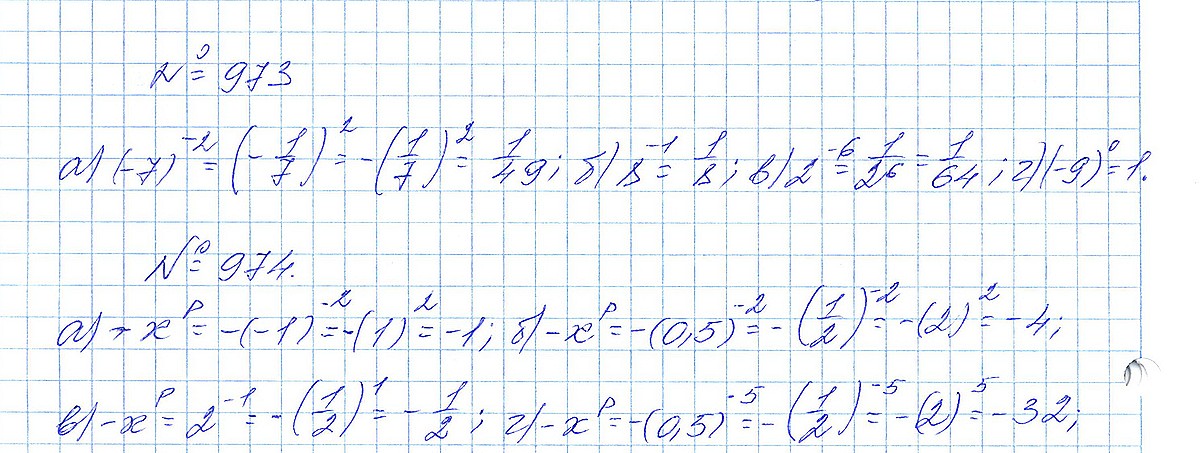 № 973
а) (-7)^-2 = (-1/7)^2 = -(1/7)^2 = 1/49; б) 8^-1 = 1/8; в) 2^-6 = 1/2^6 = 1/64; г) (-9)^0 = 1.
№ 974.
а) -x^p = -(-1)^-2 = -(1)^2 = -1; б) -x^p = -(0,5)^-2 = -(1/2)^-2 = -(2)^2 = -4;
в) -x^p = 2^-1 = -(1/2)^1 = -1/2; г) -x^p = -(0,5)^-5 = -(1/2)^-5 = -(2)^5 = -32;